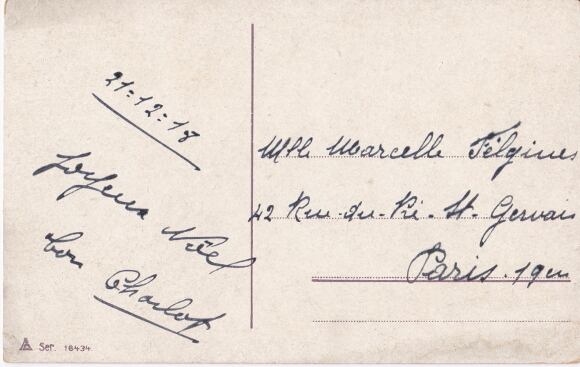 21=12=18
Joyeux Noël
ton Charlot
Mlle Marcelle Félgines
42 Rue-du-Pré-St-Gervais
Paris. 19em
Ser. 18434